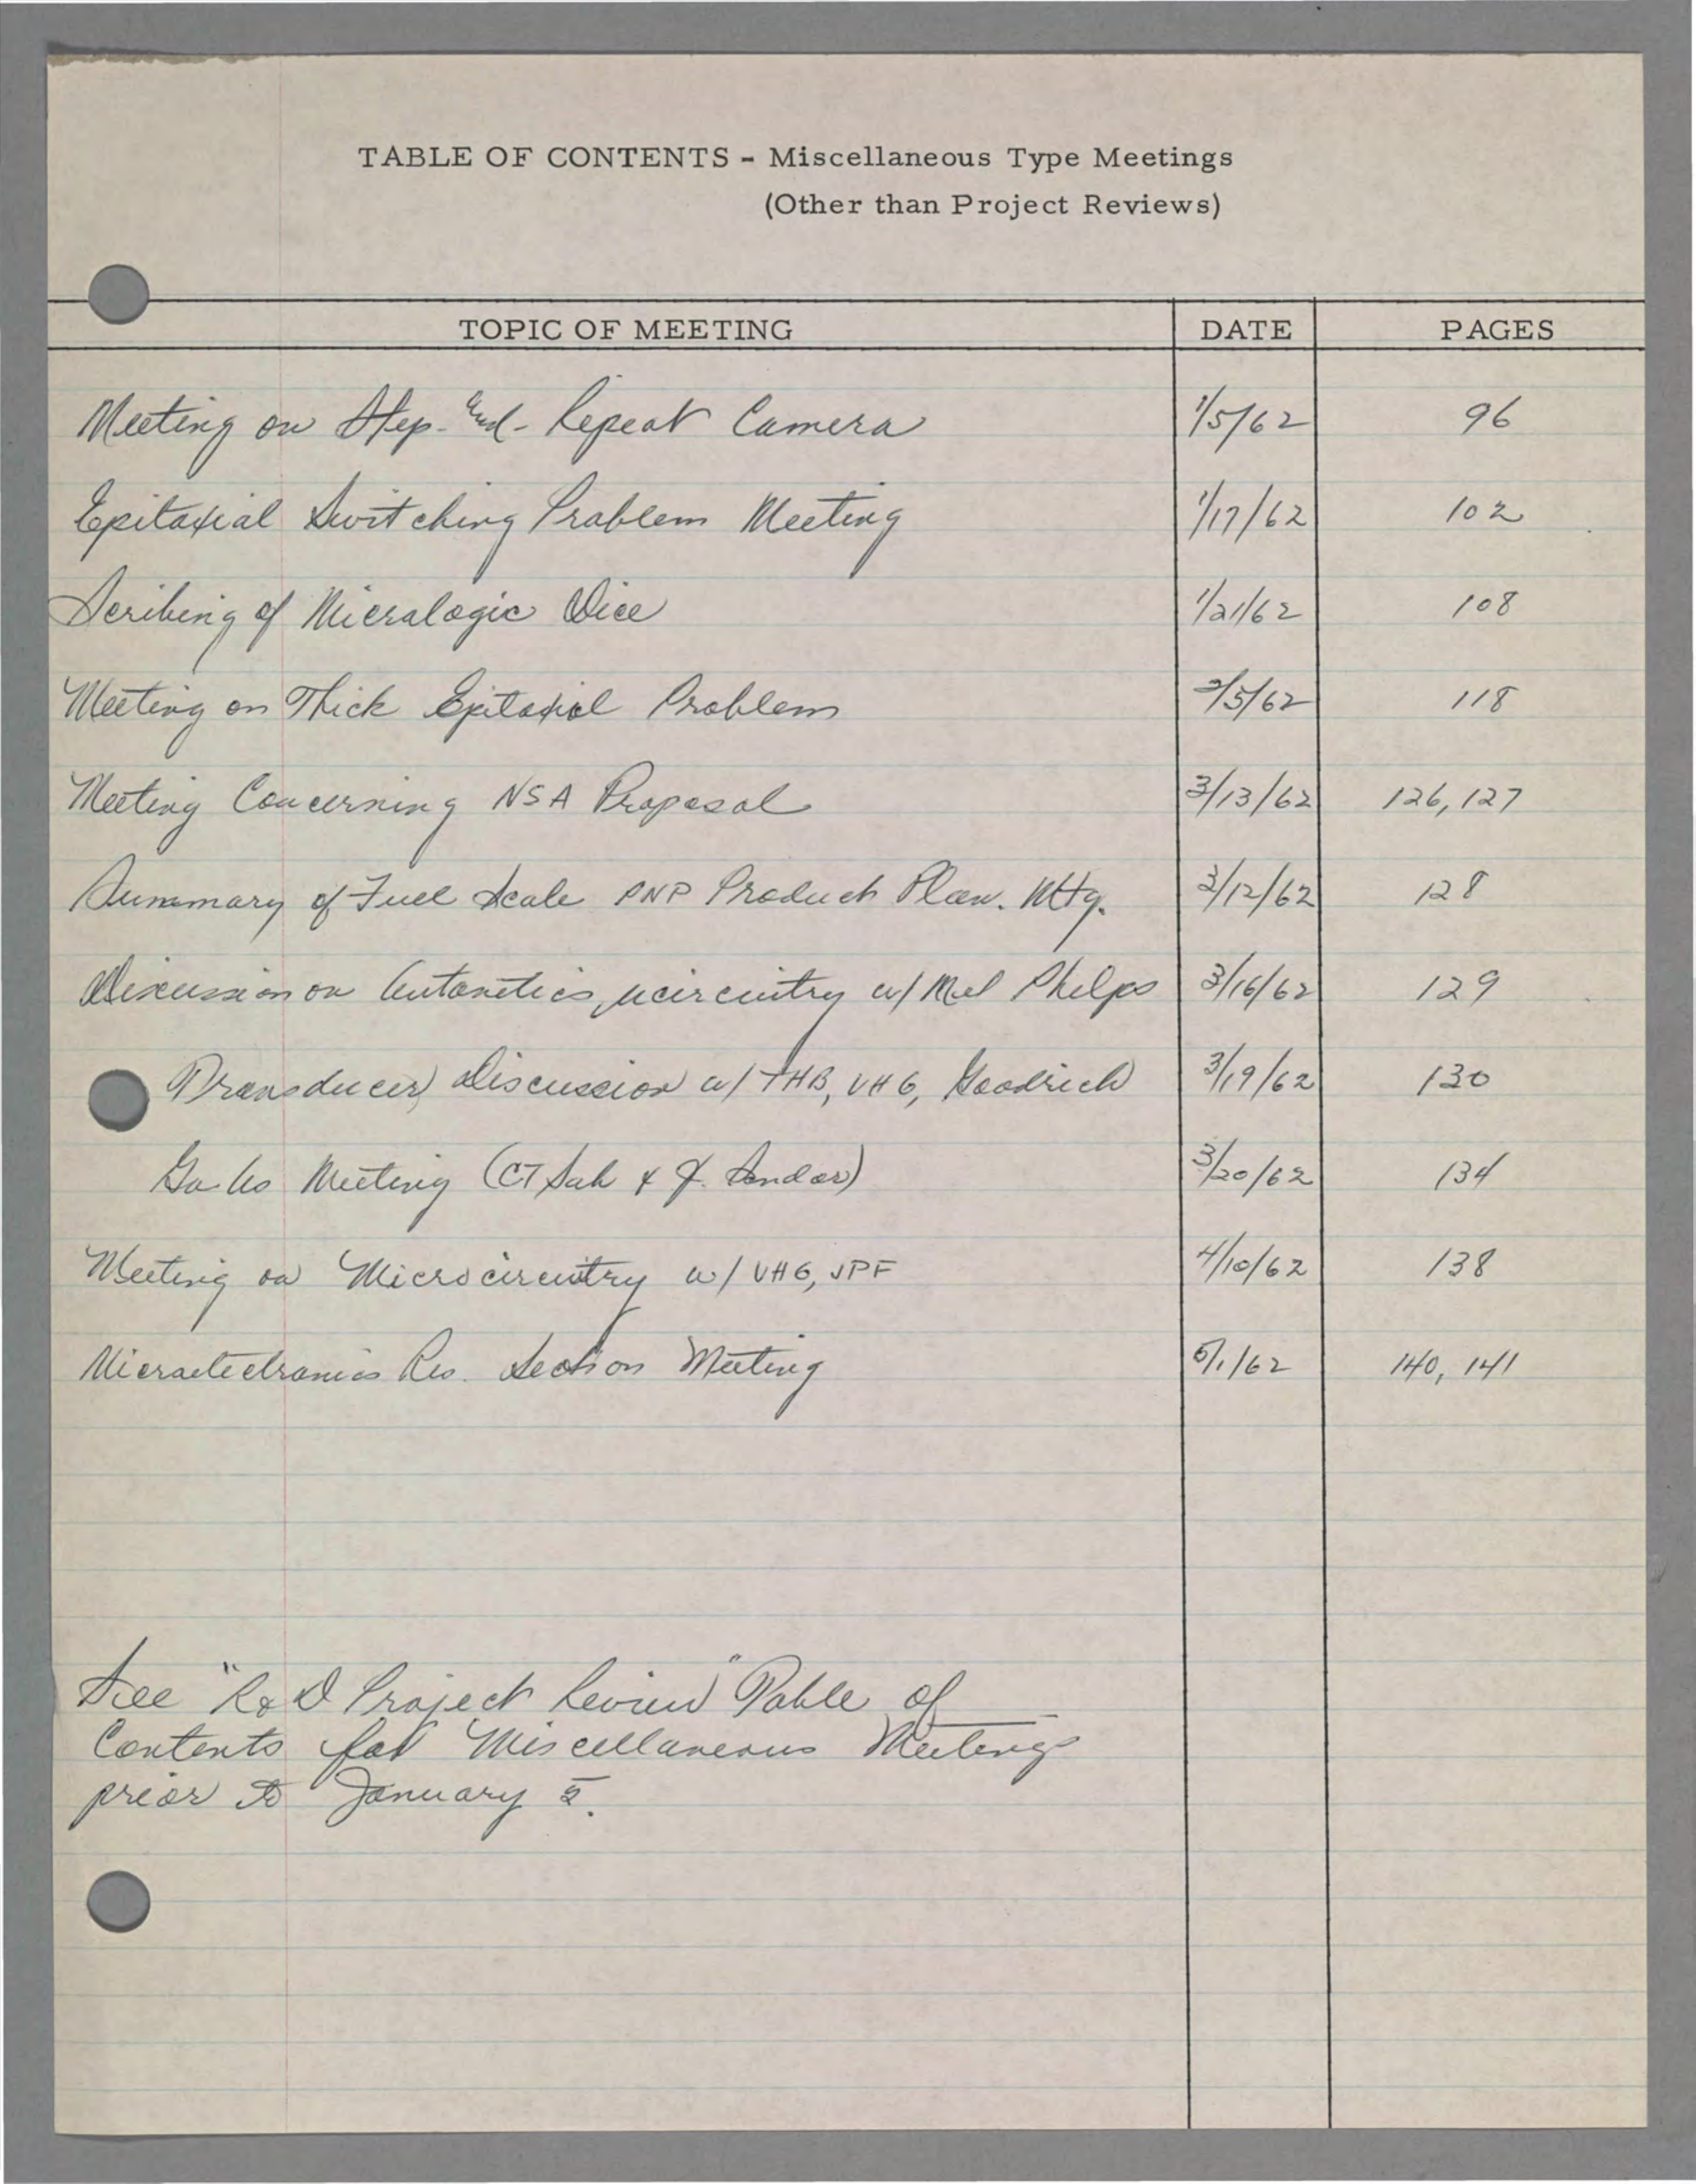 TABLE OF CONTENTS - Miscellaneous Type Meetings
(Other than Project Reviews)
TOPIC OF MEETING DATE PAGES
Meeting on Step-And-Repeat Camera 1/5/62 96
Epitaxial Switching Problem Meeting 1/17/62 102
Scribing of Micrologic Dice 1/21/62 108
Meeting on Thick Epitaxial Problem 2/5/62 118
Meeting Concerning NSA Proposal 3/13/62 126, 127
Summary of Full Scale PNP Product Plan. Mtg. 3/12/62 128
Discussion on Autonetics, µcircuitry w/ Mel Phelps 3/16/62 129
Transducer Discussion w/ THB, VHG, Goodrich 3/19/62 130
GaAs Meeting (CT Sah & J. Sandor) 3/20/62 134
Meeting on Microcircuitry w/ VHG, JPF 4/10/62 138
Microelectronics Res. Section Meeting 5/1/62 140, 141
See "R & D Project Review" Table of
Contents for Miscellaneous Meetings
prior to January 5.